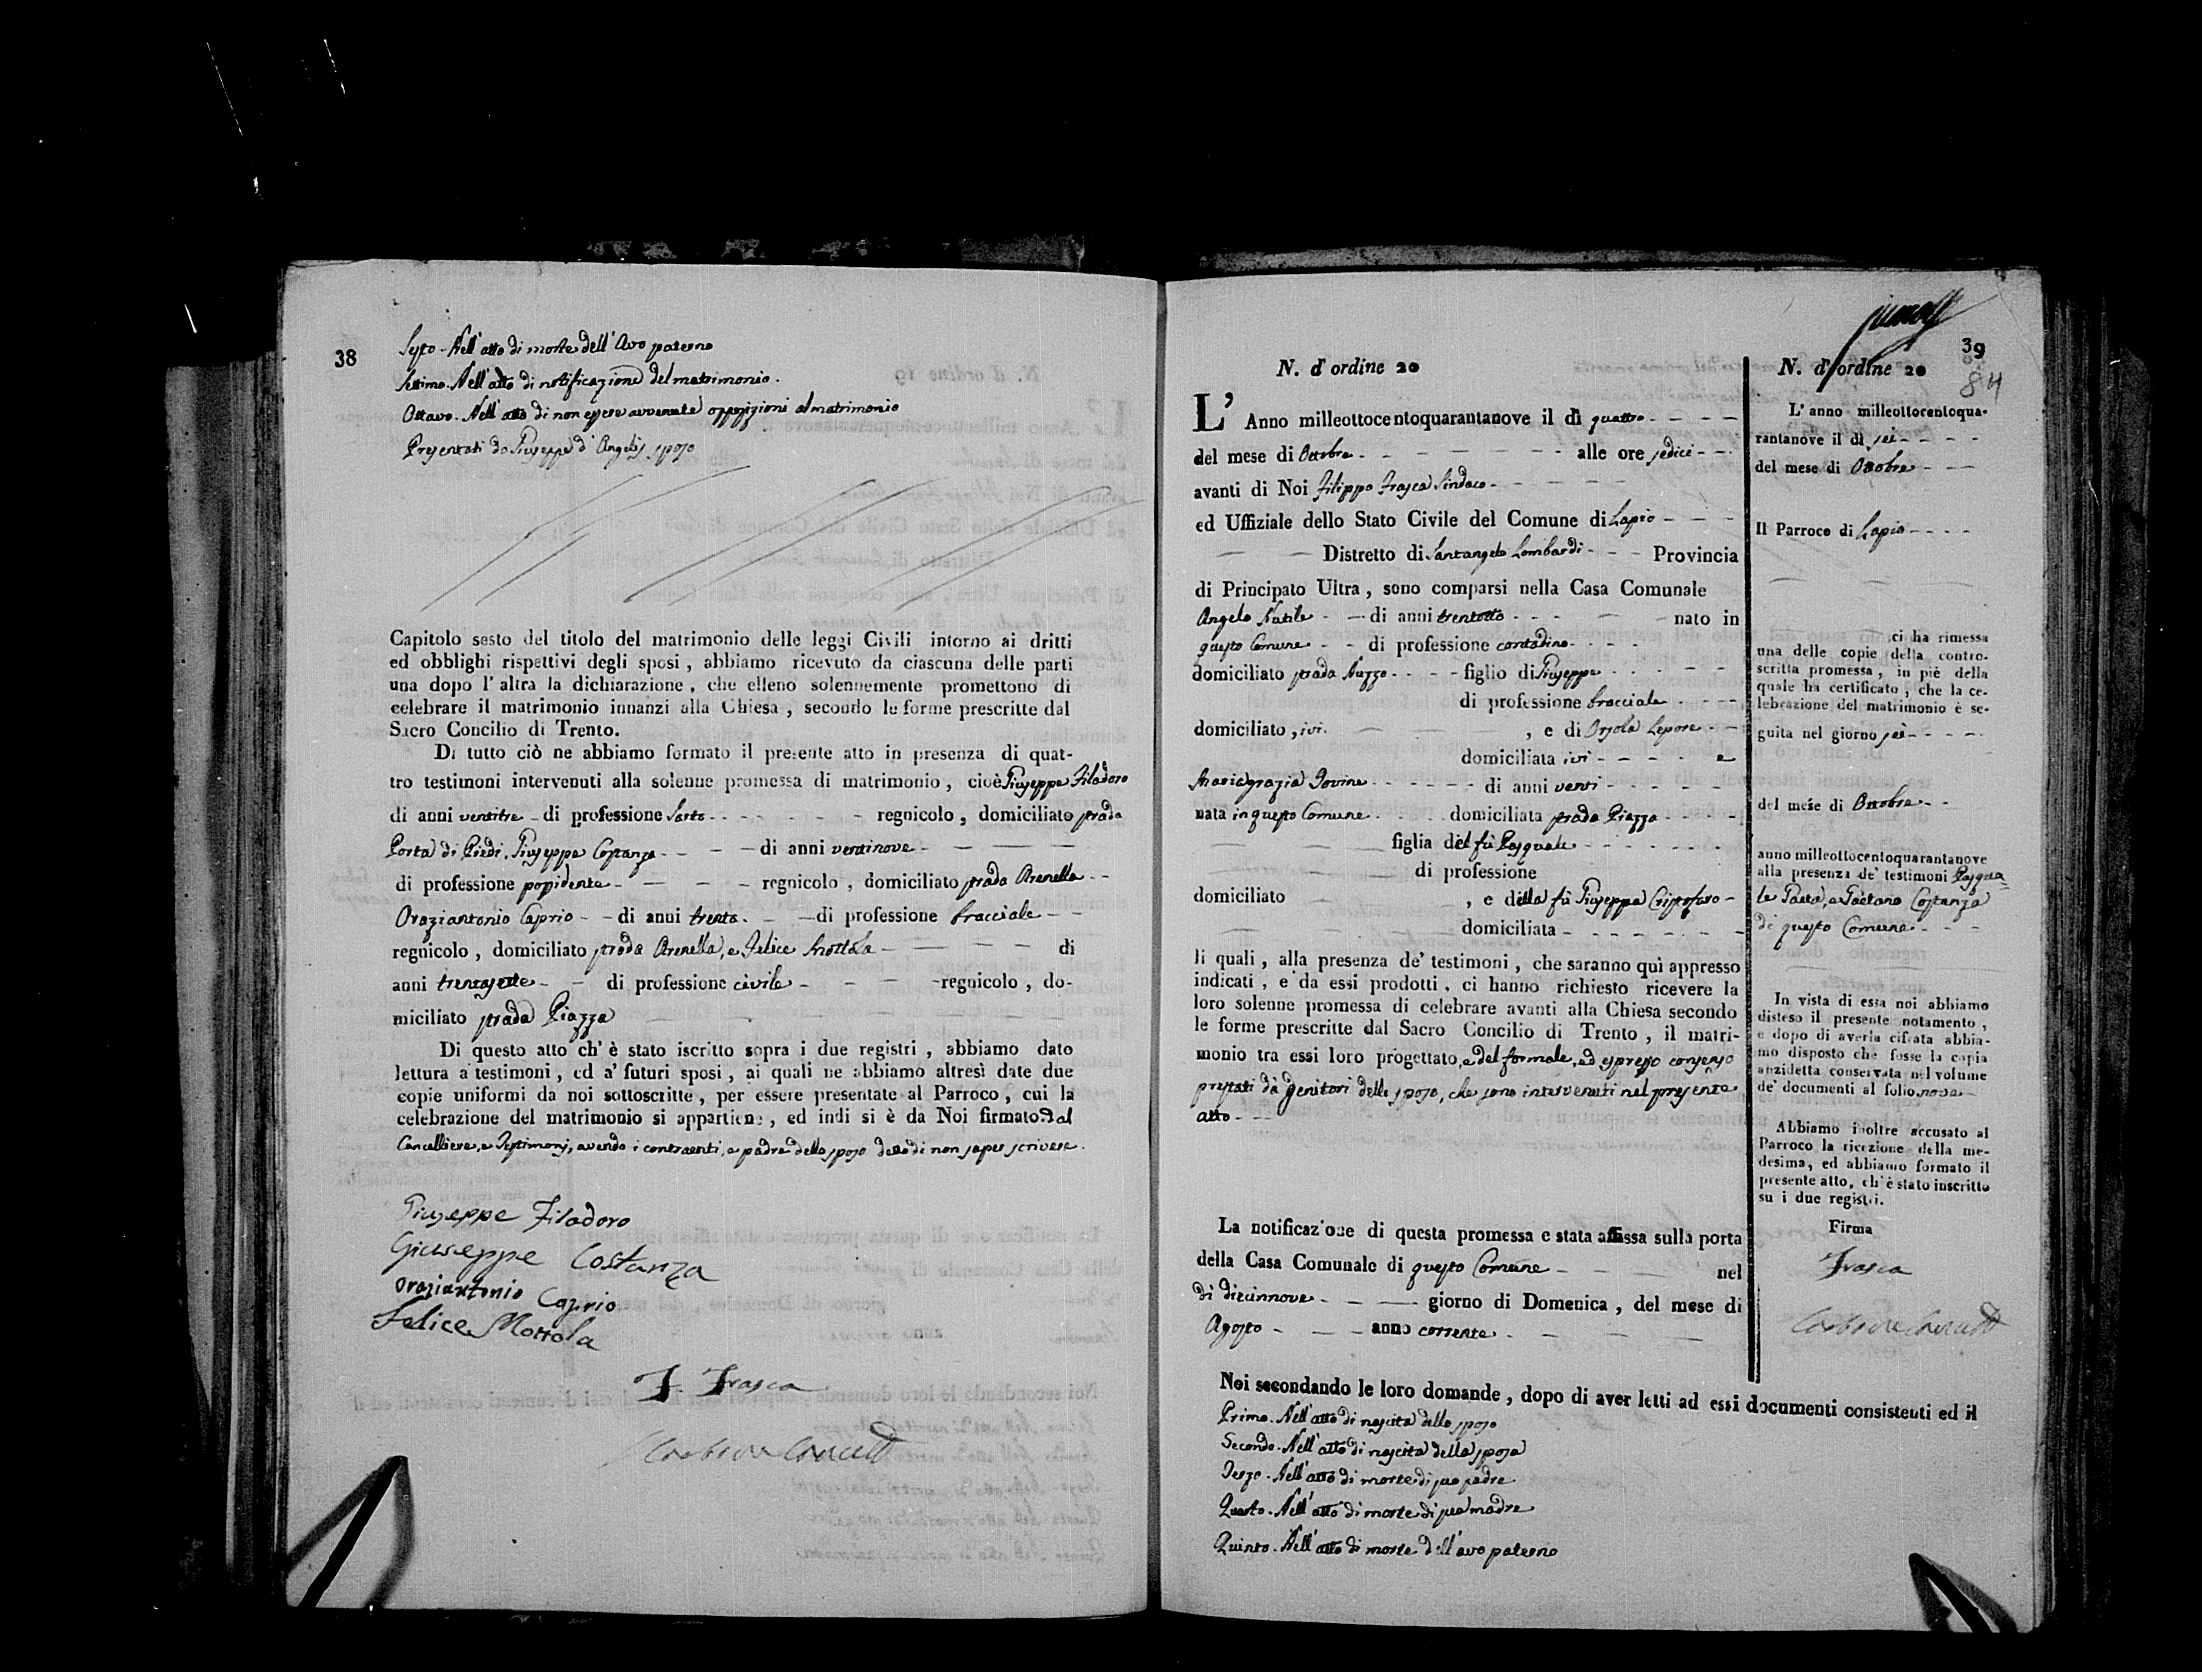 38
Sesto. Nell'atto di morte dell'Avo paterno
Settimo. Nell'atto di notificazione del matrimonio.
Ottavo. Nell'atto di non essere avvenute opposizioni al matrimonio
Presentati da Giuseppe d'Angelis sposo
Capitolo sesto del titolo del matrimonio delle leggi Civili intorno ai dritti
ed obblighi rispettivi degli sposi, abbiamo ricevuto da ciascuna delle parti
una dopo l'altra la dichiarazione, che elleno solennemente promettono di
celebrare il matrimonio innanzi alla Chiesa, secondo le forme prescritte dal
Sacro Concilio di Trento.
Di tutto ciò ne abbiamo formato il presente atto in presenza di quat-
tro testimoni intervenuti alla solenne promessa di matrimonio, cioè Giuseppe Filadoro
di anni ventitre - di professione Sarto - regnicolo, domiciliato strada
Porta di Piedi, Giuseppe Costanza - di anni ventinove -
di professione possidente - regnicolo, domiciliato strada Arenella -
Oraziantonio Caprio - di anni trenta - di professione bracciale -
regnicolo, domiciliato strada Arenella, e Felice Mottola - di
anni trentasette - di professione civile - regnicolo, do-
miciliato strada Piazza
Di questo atto ch'è stato iscritto sopra i due registri, abbiamo dato
lettura a'testimoni, ed a'futuri sposi, ai quali ne abbiamo altresì date due
copie uniformi da noi sottoscritte, per essere presentate al Parroco, cui la
celebrazione del matrimonio si appartiene, ed indi si è da Noi firmato dal
Cancelliere, e Testimonj, avendo i contraenti, e padre dello sposo detto di non saper scrivere.
Giuseppe Filadoro
Giuseppe Costanza
Oraziantonio Caprio
Felice Mottola
F. Frasca
39
84
N. d'ordine 20
L'Anno milleottocentoquarantanove il dì quattro - - - -
del mese di Ottobre - - - alle ore sedici - -
avanti di Noi Filippo Frasca Sindaco - - -
ed Uffiziale dello Stato Civile del Comune di Lapio - - -
Distretto di Santangelo Lombardi - - - Provincia
di Principato Ultra, sono comparsi nella Casa Comunale
Angelo Nutile - - di anni trentotto - - - nato in
questo Comune - - di professione contadino - - -
domiciliato strada Nuzzo - - - - figlio di Giuseppe - - -
di professione bracciale - - -
domiciliato, ivi. - - , e di Orsola Lepore - -
domiciliata ivi - - - - e
Mariagrazia Iovine - - - - - di anni venti - - - -
nata in questo Comune - - - domiciliata strada Piazza - - -
figlia del fù Pasquale - - - - - -
di professione
domiciliato - , e della fù Giuseppa Cristofaro -
domiciliata - - - - - -
li quali, alla presenza de'testimoni, che saranno qui appresso
indicati, e da essi prodotti, ci hanno richiesto ricevere la
loro solenne promessa di celebrare avanti alla Chiesa secondo
le forme prescritte dal Sacro Concilio di Trento, il matri-
monio tra essi loro progettato, e del formale, ed espresso consenso
prestati dà Genitori dello sposo, che sono intervenuti nel presente
atto - - -
La notificazione di questa promessa e stata affissa sulla porta
della Casa Comunale di questo Comune - - - nel
dì diecinnove - - - giorno di Domenica, del mese di
Agosto - - - anno corrente - - -
Noi secondando le loro domande, dopo di aver letti ad essi i documenti consistenti ed il
Primo. Nell'atto di nascita dello sposo
Secondo. Nell'atto di nascita della sposa
Terzo. Nell'atto di morte di suo padre
Quarto. Nell'atto di morte di sua madre
Quinto. Nell'atto di morte dell'avo paterno
N. d'ordine 20
L'anno milleottocentoqua-
rantanove il dì sei - - - -
del mese di Ottobre - - -
Il Parroco di Lapio - - - -
ci ha rimessa
una delle copie della contro-
scritta promessa, in piè della
quale ha certificato, che la ce-
lebrazione del matrimonio è se-
guita nel giorno sei - - - -
del mese di Ottobre - -
anno milleottocentoquarantanove
alla presenza de'testimoni Pasqua-
le Paeta, e Gaetano Costanza
di questo Comune - - -
In vista di essa noi abbiamo
disteso il presente notamento,
e dopo di averla cifrata abbia-
mo disposto che fosse la copia
anzidetta conservata nel volume
de'documenti al folio nove -
Abbiamo inoltre accusato al
Parroco la ricezione della me-
desima, ed abbiamo formato il
presente atto, ch'è stato inscritto
su i due registri.
Firma
Frasca